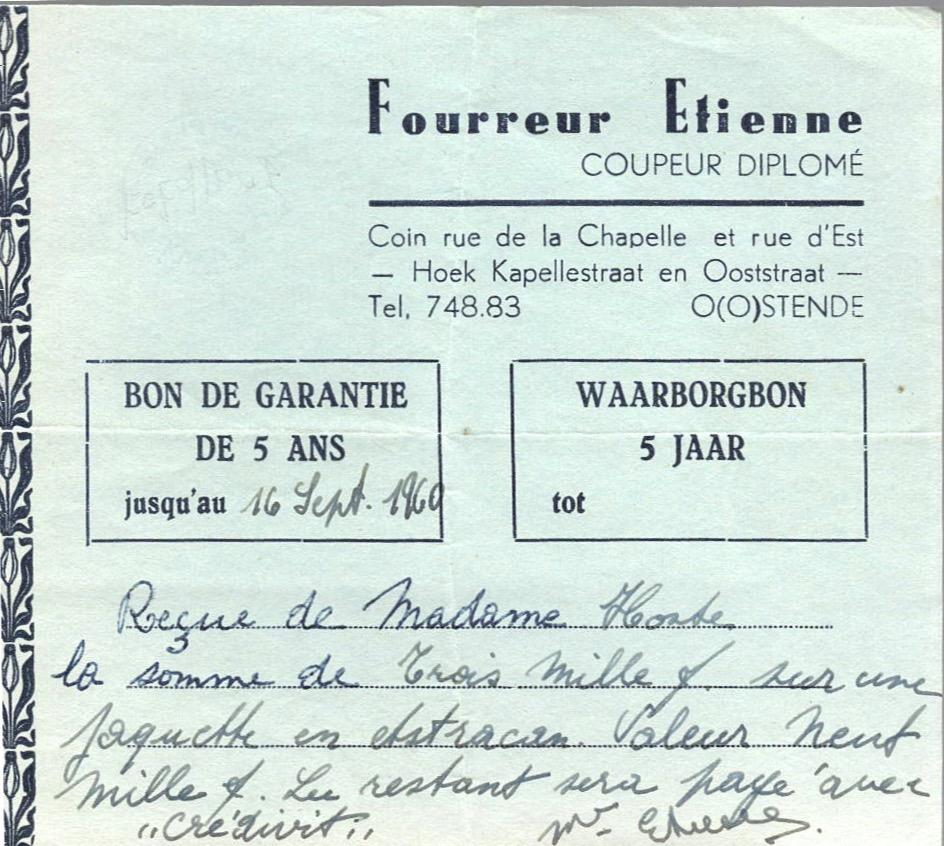 Fourreur Etienne
COUPEUR DIPLOMÉ
Coin rue de la Chapelle et rue d'Est
— Hoek Kapellestraat en Ooststraat —
Tel. 748.83 O(O)STENDE
BON DE GARANTIE
DE 5 ANS
jusqu'au 16 Sept. 1960
WAARBORGBON
5 JAAR
tot
Reçue de Madame Hoste
la somme de Trois Mille f. sur une
jaquette en Astracan. Valeur Neuf
Mille f. Le restant sera payé avec
"crédivit"
Mr Etienne.